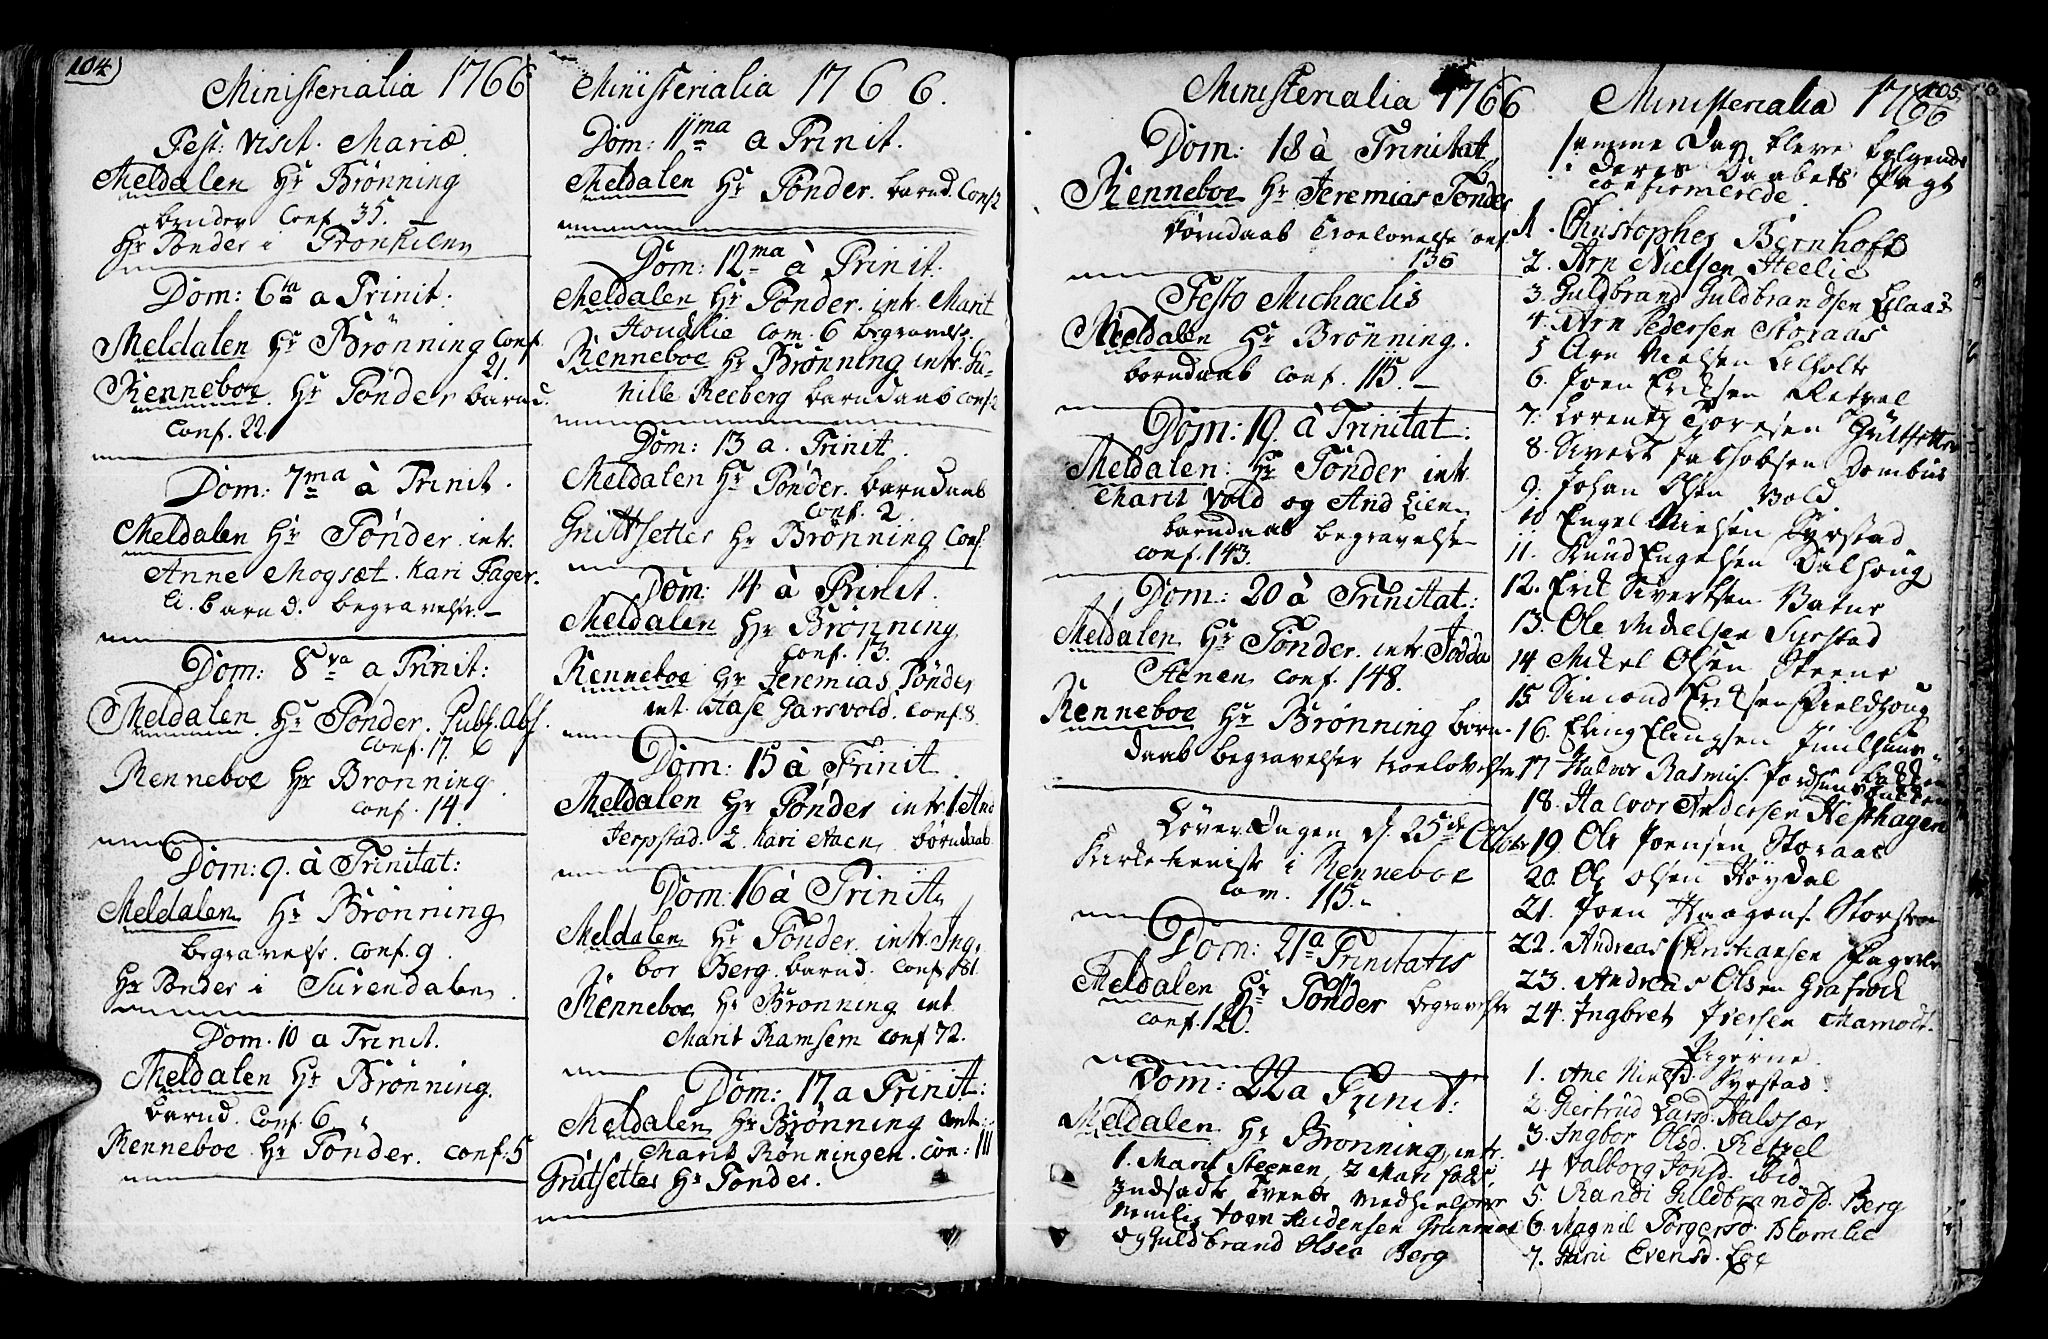 104)
Ministerialia 1766
Fest: Visit. Mariæ
Meldalen Hr Brønning
Conf. 35.
Hr Tønder i
Dom: 6ta a Trinit:
Meldalen Hr Brønning Conf.
21.
Renneboe. Hr Tønder barnd.
Conf. 22.
Dom: 7ma à Trinit.
Meldalen Hr Tønder. intr.
Anne Mogsæt. Kari Fager-
li. barnd. begravelse.
Dom: 8va a Trinit:
Meldalen Hr Tønder. Publ. Abs.
Conf. 17. 6
Renneboe Hr Brønning.
Conf. 14.
Dom: 9. à Trinitat:
Meldalen Hr Brønning
begravelse. Conf. 9.
Hr Tønder i Surendalen.
Dom. 10 a Trinit.
Meldalen Hr Brønning.
barnd. Conf. 6
Renneboe. Hr Tønder. Conf: 5
Ministerialia 1766.
Dom: 11ma a Trinit.
Meldalen Hr Tønder. barnd. Conf. 2
Dom: 12ma à Trinit.
Meldalen Hr Tønder. intr. Marit
Houglie Com. 6 begravelse.
Renneboe Hr Brønning intr. Gu-
nille Reeberg barndaab Conf. 2
Dom: 13 a. Trinit.
Meldalen Hr Tønder. barndaab
Conf. 2
Gruttsetter Hr Brønning Conf.
Dom: 14 à Trinit.
Meldalen Hr Brønning
Conf. 13.
Renneboe Hr Jeremias Tønder
int. Aase Garsvold. Conf. 8.
Dom: 15 à Trinit.
Meldalen Hr Tønder intr. 1. And
Jerpstad. 2. Kari Aaen, børndaab
Dom. 16 à Trinit.
Meldalen Hr Tønder. intr. Ing-
bor Berg. barnd. Conf. 81.
Renneboe Hr Brønning int.
Marit Ramsem Conf 72.
Dom: 17. a Trinit:
Meldalen Hr Brønning int:
Marit Rønningen. Con: 111
Grutsetter Hr Tønder.
Ministerialia 1766
Dom: 18 à Trinitat
Renneboe Hr Jeremias Tønder
børndaab Troelovelse Conf.
136
Festo Michaelis
Meldalen Hr Brønning.
børndaab Conf. 115.
Dom: 19. à Trinitat:
Meldalen: Hr Tønder intr.
Marit Vold og And Lien
barndaab begravelse
Conf. 143.
Dom: 20 à Trinitat:
Meldalen Hr Tønder. intr. Jodda
Aenen Conf. 148.
Renneboe Hr Brønning børn-
daab begravelser troelovelser
Løverdagen d. 25de Octobr
i Renneboe
Com. 115.
Dom: 21 a Trinitatis
Meldalen Hr Tønder begravelse
Conf. 120.
Dom: 22 a Trinit:
Meldalen Hr Brønning, intr.
1. Marit Steenen, 2 Mari
Indsadt Tvende Medhielpere
nemlig Joen Audensen
og Guldbrand Olsen Berg
105.
Ministerialia 1766
samme Dag bleve følgende
deres Daabes Pagt
confirmerede.
1. Christopher Bernhoft
2. Arn Nielsen Heelie
3. Guldbrand Guldbrandsen
4. Arn Pedersen Storaas
5 Arn Nielsen
6. Joen Ericksen Retzel
7. Lorentz
8. Sivert Jachobsen Dombus
9. Johan Olsen Vold
10 Engel Nielsen Syrstad
11. Knud Engelsen Dalhoug
12. Erik Sivertsen
13. Ole Mikelsen Syrstad
14 Mikel Olsen Steene
15 Simond Ericksen
16. Eling Elingsen
17 Halvor Rasmus.
18. Halvor Andersen Hesthagen
19. Ole Joensen Storaas
20. Ole Olsen Høydal
21. Joen Haagens.
22. Andreas Christiansen Fagerli
23. Andreas Olsen
24. Ingbret Iversen
Pigerne
1. Ane Nielsd Syrstad.
2. Giertrud
3. Ingbor Olsd. Retzel
4 Valborg Jonsd. ibid
5. Randi Guldbrandsd. Berg
6. Magnil Torgersd. Blomlie
7. Evensd. Eoe